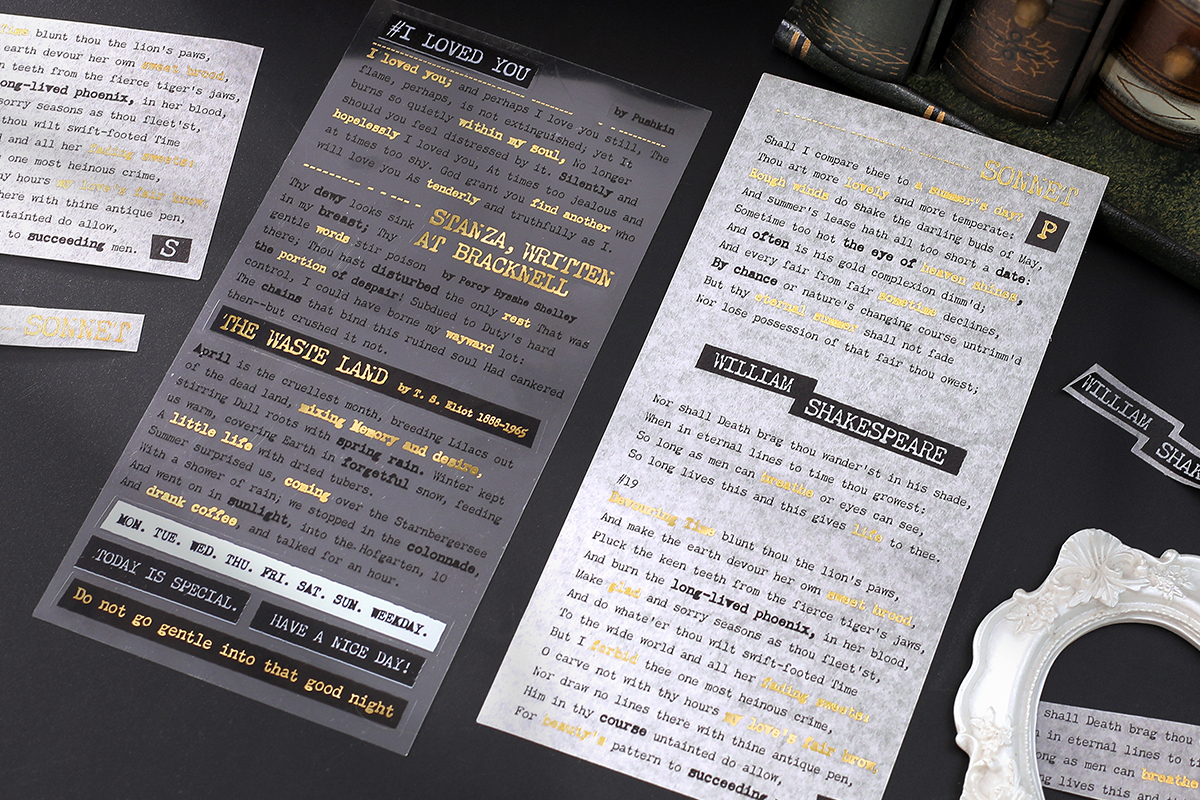 Time blunt thou the lion's paws,
earth devour her own sweet brood,
teeth from the fierce tiger's jaws,
ong-lived phoenix, in her blood,
sorry seasons as thou fleet'st,
thou wilt swift-footed Time
and all her fading sweets:
one most heinous crime,
hy hours my love's fair brow
here with thine antique pen,
untainted do allow,
to succeeding men.
S
SONNET
#I LOVED YOU
by Pushkin
I loved you; and perhaps I love you still, The
flame, perhaps, is not extinguished; yet It
burns so quietly within my soul, No longer
should you feel distressed by it. Silently and
hopelessly I loved you, At times too jealous and
at times too shy. God grant you find another who
will love you As tenderly and truthfully as I.
STANZA, WRITTEN
AT BRACKNELL
by Percy Bysshe Shelley
Thy dewy looks sink
in my breast; Thy
gentle words stir poison
there; Thou hast disturbed the only rest That was
the portion of despair! Subdued to Duty's hard
control, I could have borne my wayward lot:
The chains that bind this ruined soul Had cankered
then--but crushed it not.
THE WASTE LAND by T. S. Eliot 1888-1965
April is the cruellest month, breeding Lilacs out
of the dead land, mixing Memory and desire,
stirring Dull roots with spring rain. Winter kept
us warm, covering Earth in forgetful snow, feeding
A little life with dried tubers.
Summer surprised us, coming over the Starnbergersee
With a shower of rain; we stopped in the colonnade,
And went on in sunlight, into the Hofgarten, 10
And drank coffee, and talked for an hour.
MON. TUE. WED. THU. FRI. SAT. SUN. WEEKDAY.
TODAY IS SPECIAL.
HAVE A NICE DAY!
Do not go gentle into that good night
SONNET
P
Shall I compare thee to a summer's day?
Thou art more lovely and more temperate:
Rough winds do shake the darling buds of May,
And summer's lease hath all too short a date:
Sometime too hot the eye of heaven shines,
And often is his gold complexion dimm'd;
And every fair from fair sometime declines,
By chance or nature's changing course untrimm'd
But thy eternal summer shall not fade
Nor lose possession of that fair thou owest;
WILLIAM
SHAKESPEARE
Nor shall Death brag thou wander'st in his shade,
When in eternal lines to time thou growest:
So long as men can breathe or eyes can see,
So long lives this and this gives life to thee.
#19
Devouring Time blunt thou the lion's paws,
And make the earth devour her own sweet brood,
Pluck the keen teeth from the fierce tiger's jaws,
And burn the long-lived phoenix, in her blood,
Make glad and sorry seasons as thou fleet'st,
And do whate'er thou wilt swift-footed Time
To the wide world and all her fading sweets:
But I forbid thee one most heinous crime,
O carve not with thy hours my love's fair brow
Nor draw no lines there with thine antique pen,
Him in thy course untainted do allow,
For beauty's pattern to succeeding
WILLIAM
SHA
shall Death brag thou
in eternal lines to ti
ong as men can breathe
ng lives this and this